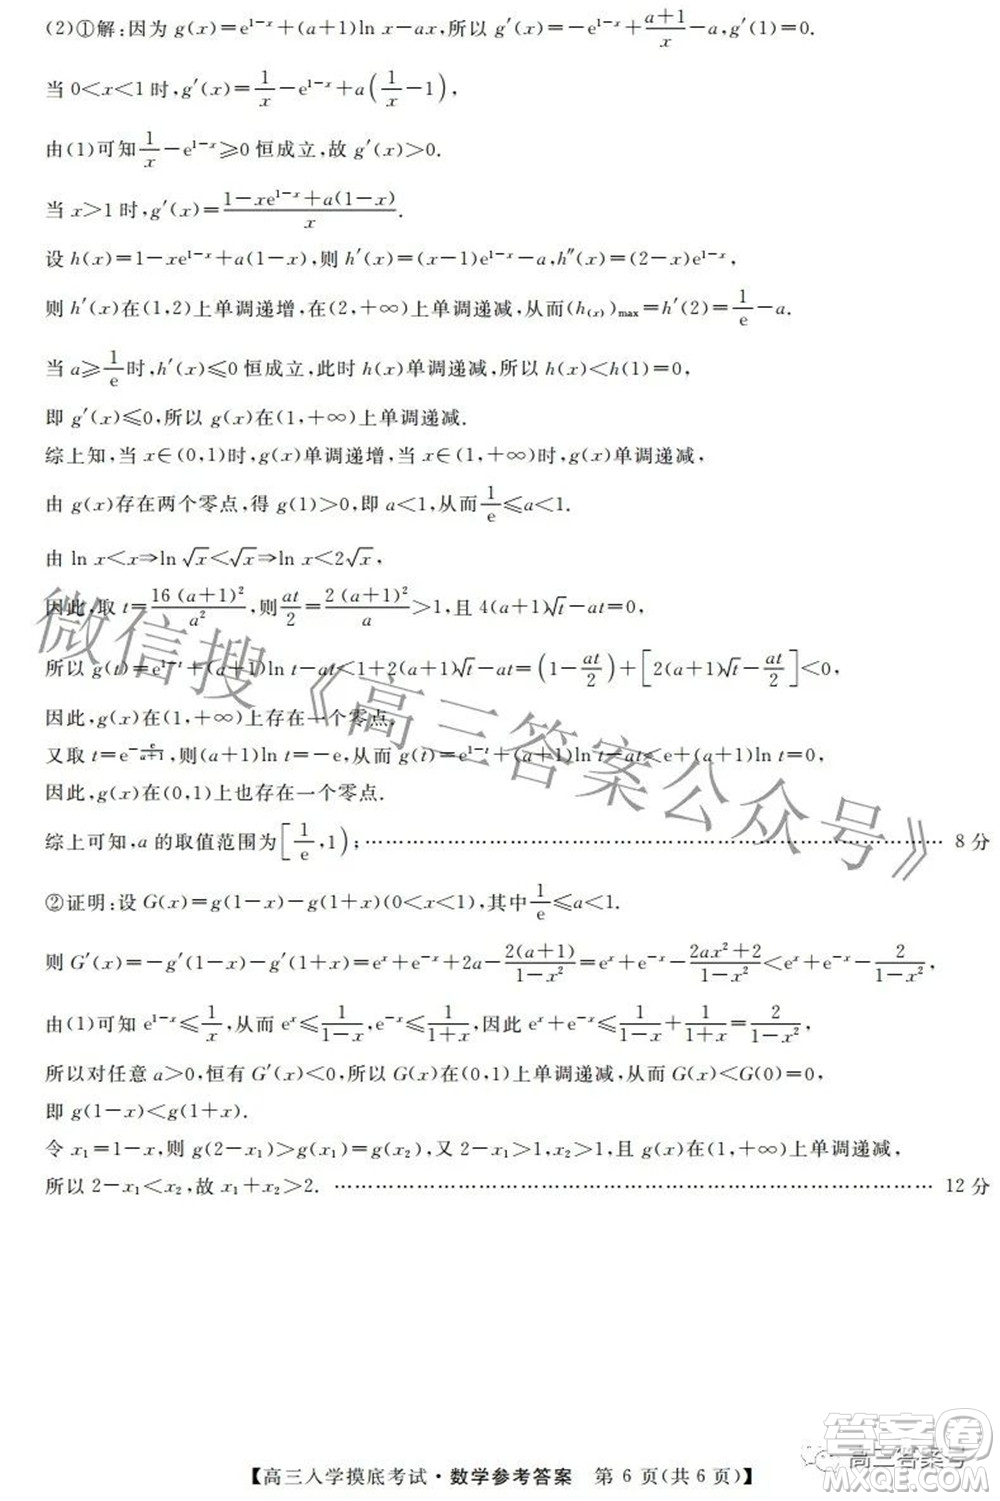 (2)①解:因为 g(x)=e^{1-x}+(a+1)ln x-ax,所以 g′(x)=-e^{1-x}+\frac{a+1}{x}-a,g′(1)=0.
当 0<x<1 时,g′(x)=\frac{1}{x}-e^{1-x}+a(\frac{1}{x}-1),
由(1)可知\frac{1}{x}-e^{1-x}≥0 恒成立,故 g′(x)>0.
当 x>1 时,g′(x)=\frac{1-xe^{1-x}+a(1-x)}{x}.
设 h(x)=1-xe^{1-x}+a(1-x),则 h′(x)=(x-1)e^{1-x}-a,h″(x)=(2-x)e^{1-x},
则 h′(x)在(1,2)上单调递增,在(2,+∞)上单调递减,从而(h_{(x)})_{max}=h′(2)=\frac{1}{e}-a.
当 a≥\frac{1}{e}时,h′(x)≤0 恒成立,此时 h(x)单调递减,所以 h(x)<h(1)=0,
即 g′(x)≤0,所以 g(x)在(1,+∞)上单调递减.
综上知,当 x∈(0,1)时,g(x)单调递增,当 x∈(1,+∞)时,g(x)单调递减,
由 g(x)存在两个零点,得 g(1)>0,即 a<1,从而\frac{1}{e}≤a<1.
由 ln x<x⇒ln\sqrt{x}<\sqrt{x}⇒ln x<2\sqrt{x},
因此,取 t=\frac{16(a+1)^2}{a^2},则\frac{at}{2}=\frac{2(a+1)^2}{a}>1,且 4(a+1)\sqrt{t}-at=0,
所以 g(t)=e^{1-t}+(a+1)ln t-at<1+2(a+1)\sqrt{t}-at=(1-\frac{at}{2})+[2(a+1)\sqrt{t}-\frac{at}{2}]<0,
因此,g(x)在(1,+∞)上存在一个零点.
又取 t=e^{-\frac{e}{a+1}},则(a+1)ln t=-e,从而 g(t)=e^{1-t}+(a+1)ln t-at<e+(a+1)ln t=0,
因此,g(x)在(0,1)上也存在一个零点.
综上可知,a 的取值范围为[\frac{1}{e},1);…………………………………………………………… 8 分
②证明:设 G(x)=g(1-x)-g(1+x)(0<x<1),其中\frac{1}{e}≤a<1.
则 G′(x)=-g′(1-x)-g′(1+x)=e^x+e^{-x}+2a-\frac{2(a+1)}{1-x^2}=e^x+e^{-x}-\frac{2ax^2+2}{1-x^2}<e^x+e^{-x}-\frac{2}{1-x^2},
由(1)可知 e^{1-x}≤\frac{1}{x},从而 e^x≤\frac{1}{1-x},e^{-x}≤\frac{1}{1+x},因此 e^x+e^{-x}≤\frac{1}{1-x}+\frac{1}{1+x}=\frac{2}{1-x^2},
所以对任意 a>0,恒有 G′(x)<0,所以 G(x)在(0,1)上单调递减,从而 G(x)<G(0)=0,
即 g(1-x)<g(1+x).
令 x_1=1-x,则 g(2-x_1)>g(x_1)=g(x_2),又 2-x_1>1,x_2>1,且 g(x)在(1,+∞)上单调递减,
所以 2-x_1<x_2,故 x_1+x_2>2. …………………………………………………………… 12 分
微信搜《高三答案公众号》
答案圈
高三答案号
【高三入学摸底考试·数学参考答案 第 6 页(共 6 页)】